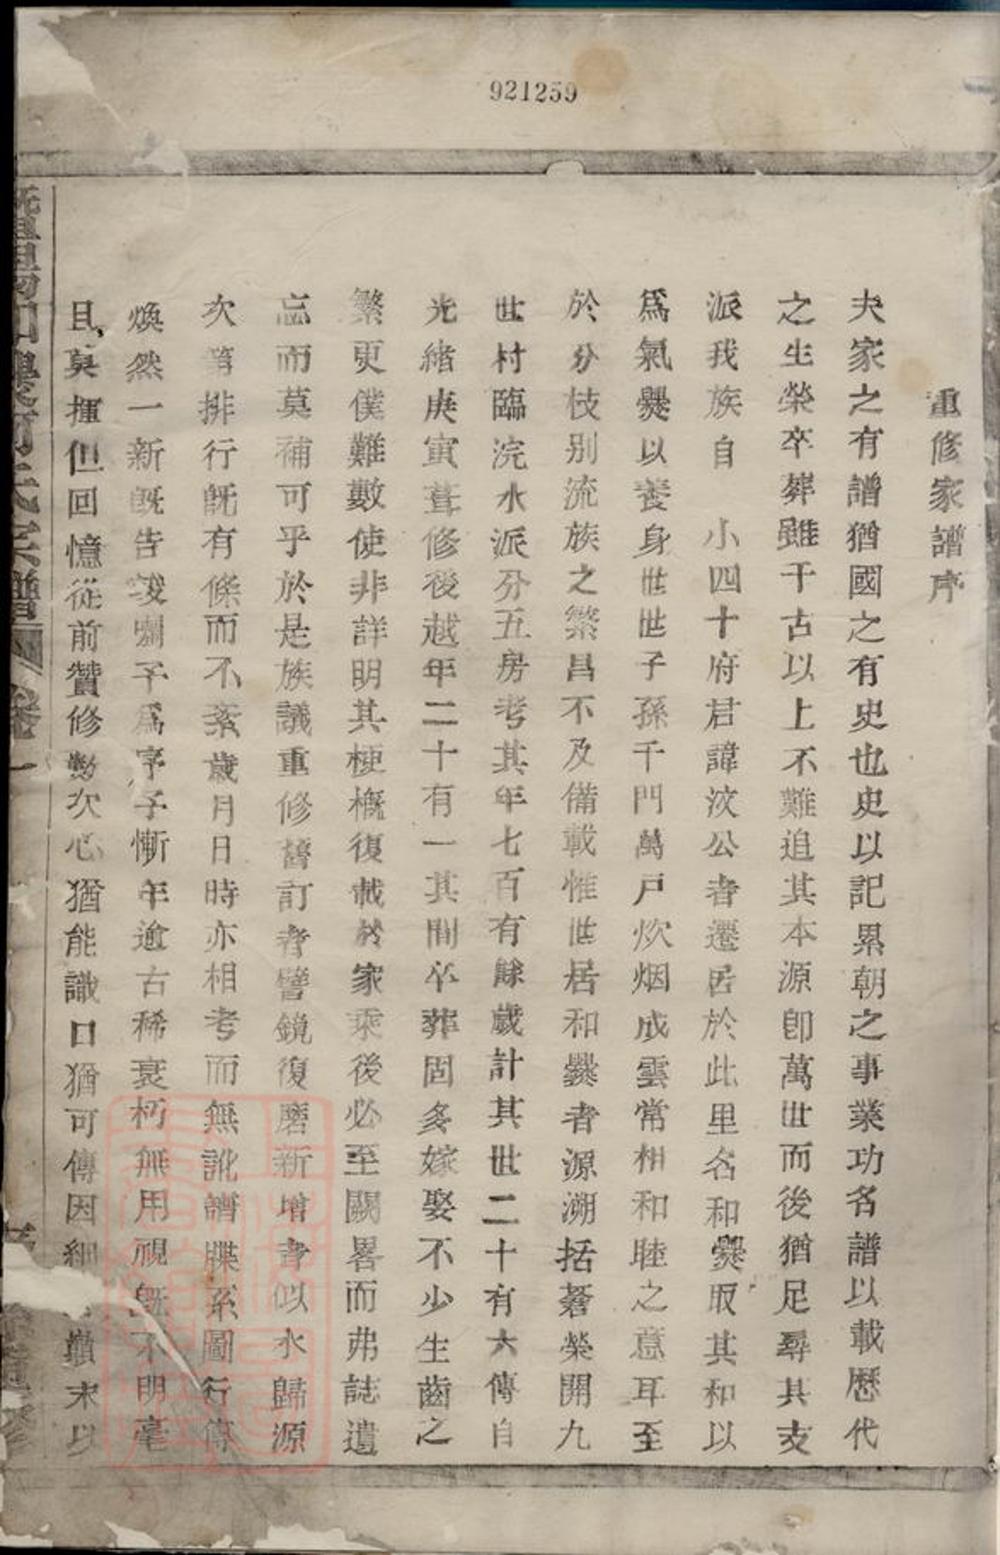 921259
重修家譜序
夫家之有譜猶國之有史也史以記累朝之事業功名譜以載歷代
之生榮卒葬雖千古以上不難追其本源卽萬世而後猶足尋其支
派我族自 小四十府君諱汶公者遷居於此里名和爨取其和以
爲氣爨以養身世世子孫千門萬戶炊烟成雲常相和睦之意耳至
於分枝别流族之繁昌不及備載惟世居和爨者源溯括蒼榮開九
世村臨浣水派分五房考其年七百有餘歲計其世二十有六傳自
光緒庚寅葺修後越年二十有一其間卒葬固多嫁娶不少生齒之
繁更僕難數使非詳明其梗概復載於家乘後必至闕畧而弗誌遺
忘而莫補可乎於是族議重修舊訂者譬鏡復磨新增者似水歸源
次第排行旣有條而不紊歲月日時亦相考而無訛譜牒系圖行傳
煥然一新旣告竣囑予爲序予慚年逾古稀衰朽無用視旣不明毫
且莫揮但回憶從前贊修數次心猶能識口猶可傳因細 巔末以
和爨 氏宗譜 卷一